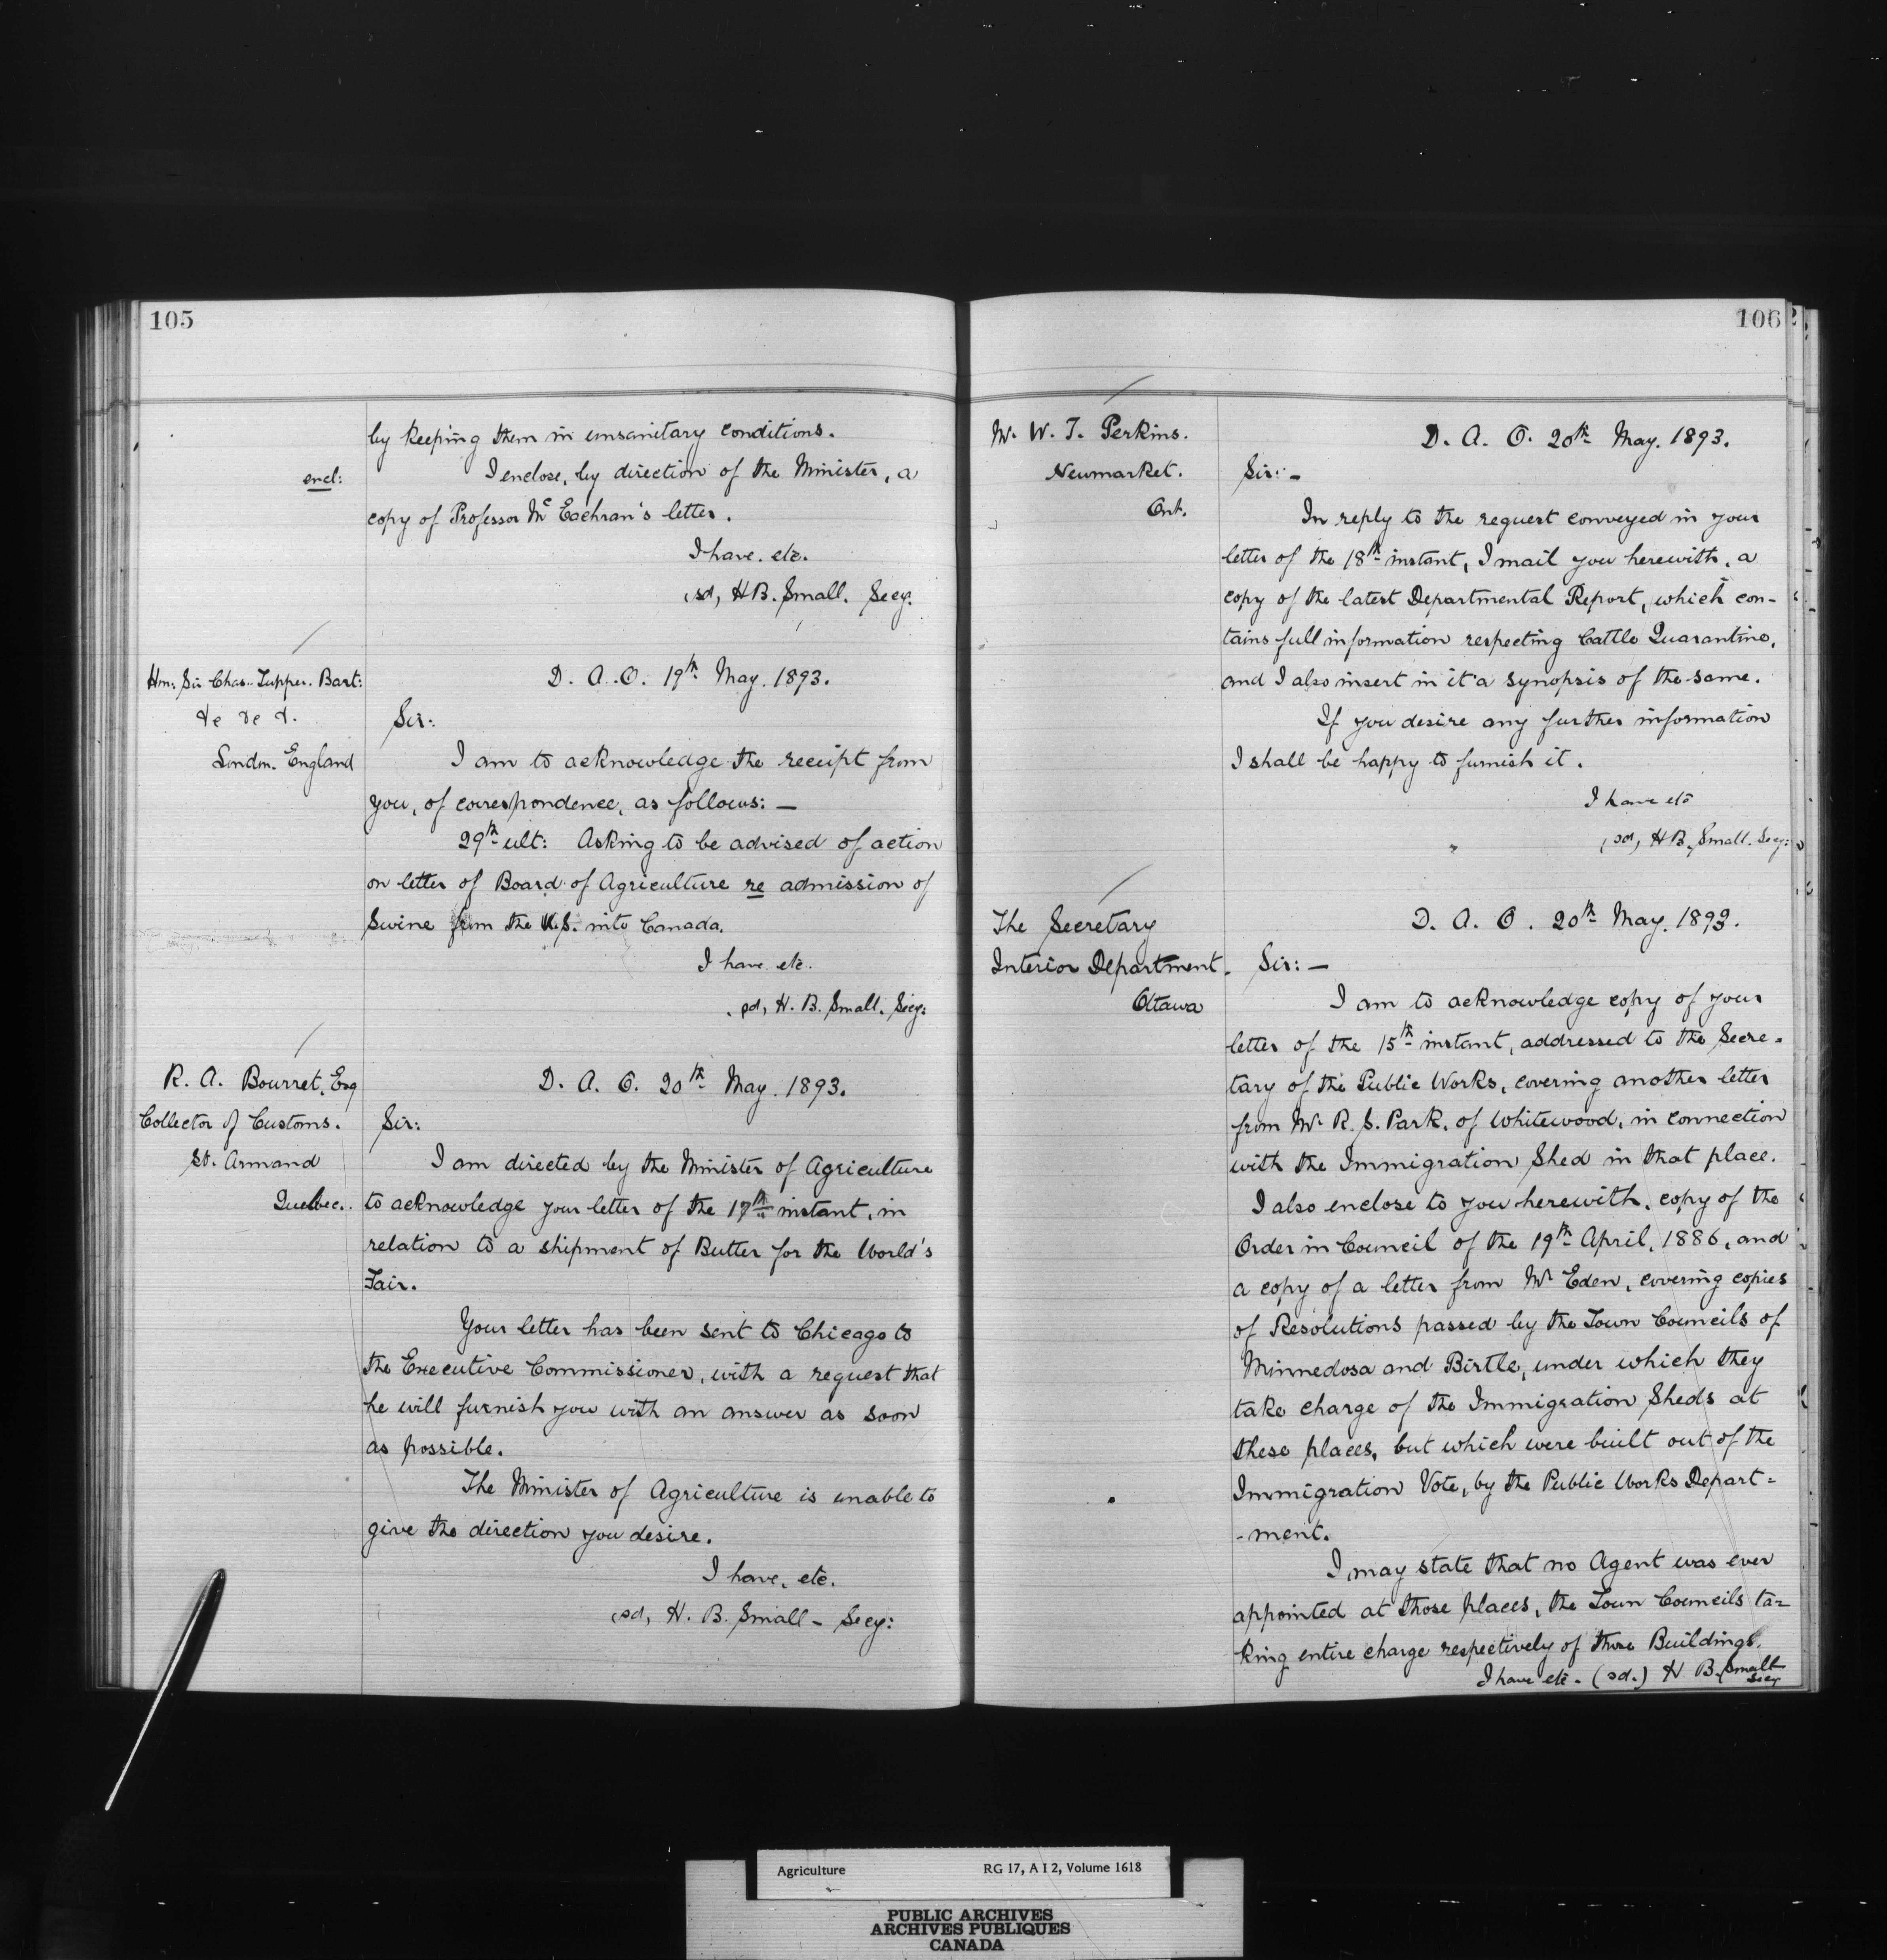 105
by keeping them in unsanitary conditions.
encl:
I enclose, by direction of the Minister, a
copy of Professor McEachran's letter.
I have. etc.
(sd, H B. Small. Secy.
Hon: Sir Chas. Tupper. Bart:
&c &c &.
London. England
D. A. O. 19th May. 1893.
Sir:
I am to acknowledge the receipt from
you, of correspondence, as follows: —
29th ult: Asking to be advised of action
on letter of Board of Agriculture re admission of
Swine from the U.S. into Canada.
I have etc.
sd, H. B. Small. Secy:
R. A. Bourret, Esq
Collector of Customs.
St. Armand
Quebec.
D. A. O. 20th May. 1893.
Sir:
I am directed by the Minister of Agriculture
to acknowledge your letter of the 17th instant, in
relation to a shipment of Butter for the World's
Fair.
Your letter has been sent to Chicago to
the Executive Commissioner, with a request that
he will furnish you with an answer as soon
as possible.
The Minister of Agriculture is unable to
give the direction you desire.
I have, etc.
(sd, H. B. Small - Secy:
106
Mr. W. T. Perkins.
Newmarket.
Ont.
D. A. O. 20th May. 1893.
Sir: -
In reply to the request conveyed in your
letter of the 18th instant, I mail you herewith, a
copy of the latest Departmental Report, which con-
tains full information respecting Cattle Quarantine,
and I also insert in it a synopsis of the same.
If you desire any further information
I shall be happy to furnish it.
I have etc
(sd, H B. Small. Secy:
The Secretary
Interior Department.
Ottawa
D. A. O. 20th May. 1893.
Sir: —
I am to acknowledge copy of your
letter of the 15th instant, addressed to the Secre-
tary of the Public Works, covering another letter
from Mr R. S. Park, of Whitewood, in connection
with the Immigration Shed in that place.
I also enclose to you herewith, copy of the
Order in Council of the 19th April, 1886, and
a copy of a letter from Mr Eden, covering copies
of Resolutions passed by the Town Councils of
Minnedosa and Birtle, under which they
take charge of the Immigration Sheds at
these places, but which were built out of the
Immigration Vote, by the Public Works Depart=
-ment.
I may state that no Agent was ever
appointed at those places, the Town Councils ta=
king entire charge respectively of those Buildings.
I have etc. (sd.) H B. Small
Secy
Agriculture RG 17, A I 2, Volume 1618
PUBLIC ARCHIVES
ARCHIVES PUBLIQUES
CANADA